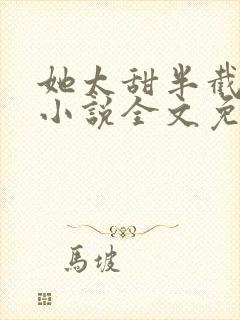 她太甜半截
小說全文免
馬坡